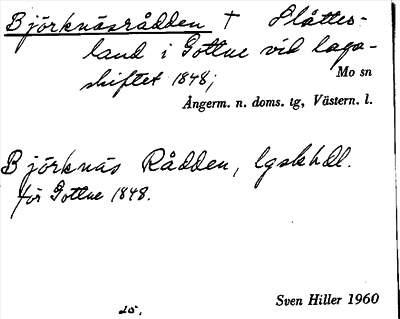 Björknäsrådden † Slåttes-
land i Gottne vid laga-
skiftet 1848;
Mo sn
Ångerm. n. doms. tg, Västern. l.
Björknäs Rådden, lgskhdl.
för Gottne 1848.
Sven Hiller 1960